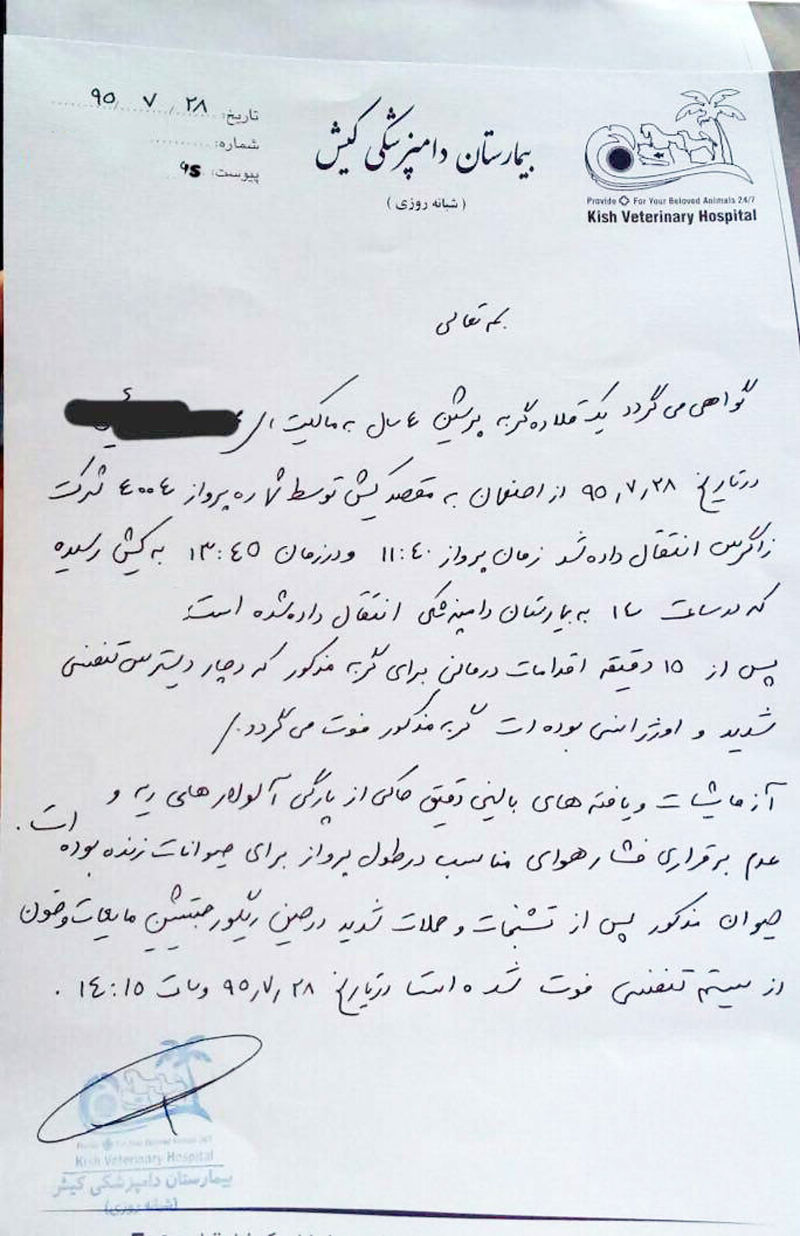 تاریخ: ۹۵/۷/۲۸
شماره:
پیوست:
بیمارستان دامپزشکی کیش
(شبانه روزی)
Provide For Your Beloved Animals 24/7
Kish Veterinary Hospital
بسمه تعالی
گواهی می گردد یک قلاده گربه پرشین ٤ سال به مالکیت
در تاریخ ۹۵,۷,۲۸ از اصفهان به مقصد کیش توسط شماره پرواز ٤۰۰٤ شرکت
زاگرس انتقال داده شد زمان پرواز ۱۱:٤۰ و در زمان ۱۳:٤۵ به کیش رسیده
که در ساعت ۱٤ به بیمارستان دامپزشکی انتقال داده شده است:
پس از ۱۵ دقیقه اقدامات درمانی برای گربه مذکور که دچار دیسترس تنفسی
شدید و اورژانسی بوده است گربه مذکور فوت می گردد./
آزمایشات و یافته های بالینی دقیق حاکی از پارگی آلوئولار های ریه و
عدم برقراری فشار هوای مناسب در طول پرواز برای حیوانات زنده بوده است.
حیوان مذکور پس از تشنجات و حملات شدید در حین ریگورجیتیشن مایعات و خون
از سیستم تنفسی فوت شده است در تاریخ ۹۵,۷,۲۸ وساعت ۱٤:۱۵ .
Kish Veterinary Hospital
بیمارستان دامپزشکی کیش
(شبانه روزی)